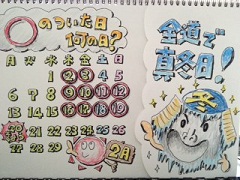 ○のついた日
何の日?
月 火 水 木 金 土 日
1 2 3 4 5
6 7 8 9 10 11 12
13 14 15 16 17 18 19
20 21 22 23 24 25 26
27 28 29
2月
全道で
真冬日!